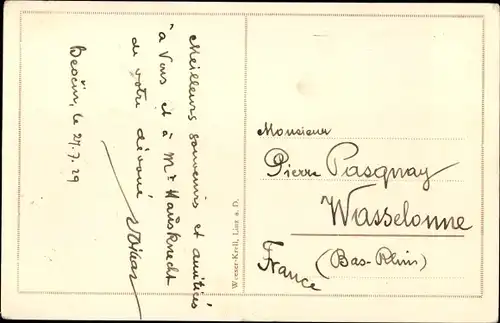 Bešeň, le 27.7.29
Meilleurs souvenirs et amitiés
à Vous et à Mr Hausknecht
de votre dévoué
Wiesser-Kroll, Linz a. D.
Monsieur
Pierre Pasquay
Wasselonne
(Bas-Rhin)
France